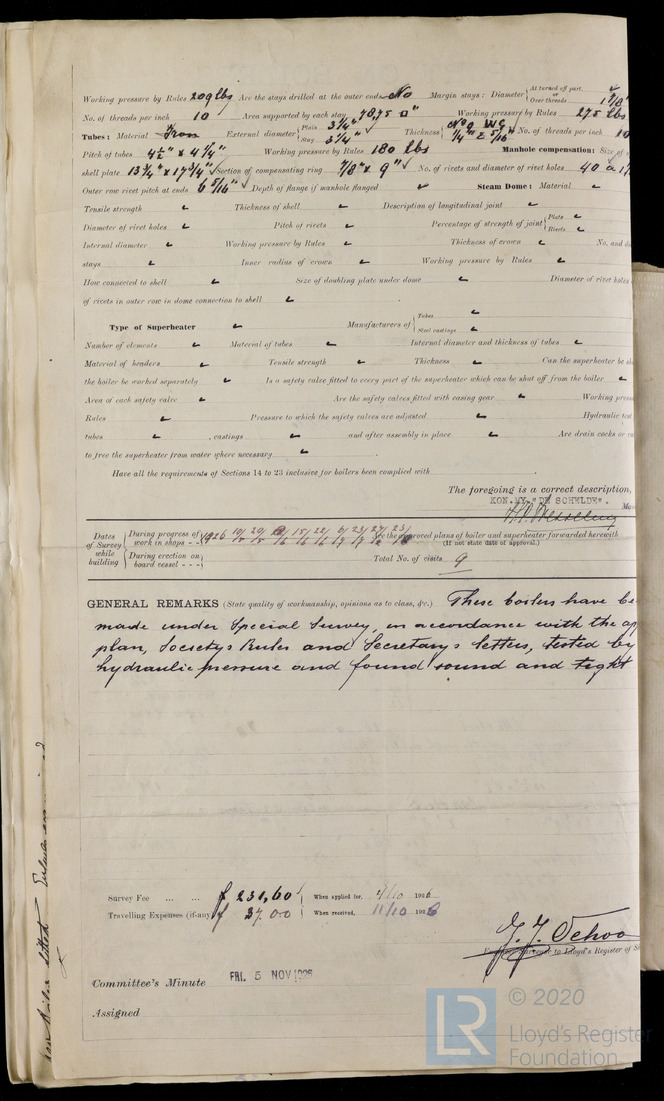 Working pressure by Rules 209 lbs Are the stays drilled at the outer ends No Margin stays: Diameter At turned off part, or Over threads 1 7/8"
No. of threads per inch 10 Area supported by each stay 78,75 □" Working pressure by Rules 275 lbs
Tubes: Material Iron External diameter Plain 3 1/4" Stay 3 1/4" Thickness No 9 WG 1/4" & 5/16" No. of threads per inch 10
Pitch of tubes 4 1/2" x 4 1/4" Working pressure by Rules 180 lbs Manhole compensation: Size of
shell plate 13 3/4" x 17 3/4" Section of compensating ring 7/8" x 9" No. of rivets and diameter of rivet holes 40 a 1
Outer row rivet pitch at ends 6 5/16" Depth of flange if manhole flanged Steam Dome: Material
Tensile strength Thickness of shell Description of longitudinal joint
Diameter of rivet holes Pitch of rivets Percentage of strength of joint Plate Rivets
Internal diameter Working pressure by Rules Thickness of crown No. and di
stays Inner radius of crown Working pressure by Rules
How connected to shell Size of doubling plate under dome Diameter of rivet holes
of rivets in outer row in dome connection to shell
Type of Superheater Manufacturers of Tubes Steel castings
Number of elements Material of tubes Internal diameter and thickness of tubes
Material of headers Tensile strength Thickness Can the superheater be sh
the boiler be worked separately Is a safety valve fitted to every part of the superheater which can be shut off from the boiler
Area of each safety valve Are the safety valves fitted with easing gear Working press
Rules Pressure to which the safety valves are adjusted Hydraulic test
tubes , castings and after assembly in place Are drain cocks or
to free the superheater from water where necessary
Have all the requirements of Sections 14 to 23 inclusive for boilers been complied with
The foregoing is a correct description,
KON. MY. "DE SCHELDE".
Dates of Survey while building During progress of work in shops - - 1926 the approved plans of boiler and superheater forwarded herewith
(If not state date of approval.)
During erection on board vessel - - - Total No. of visits 9
GENERAL REMARKS (State quality of workmanship, opinions as to class, &c.) These boilers have be
made under Special Survey, in accordance with the ap
plan, Society's Rules and Secretary's letters, tested by
hydraulic pressure and found sound and tight
Survey Fee ... ... f 231,60 When applied for, 4/10 1926
Travelling Expenses (if any) f 37.00 When received, 11/10 1926
to Lloyd's Register of S
Committee's Minute FRI. 5 NOV 1926
Assigned
LR © 2020
Lloyd's Register
Foundation